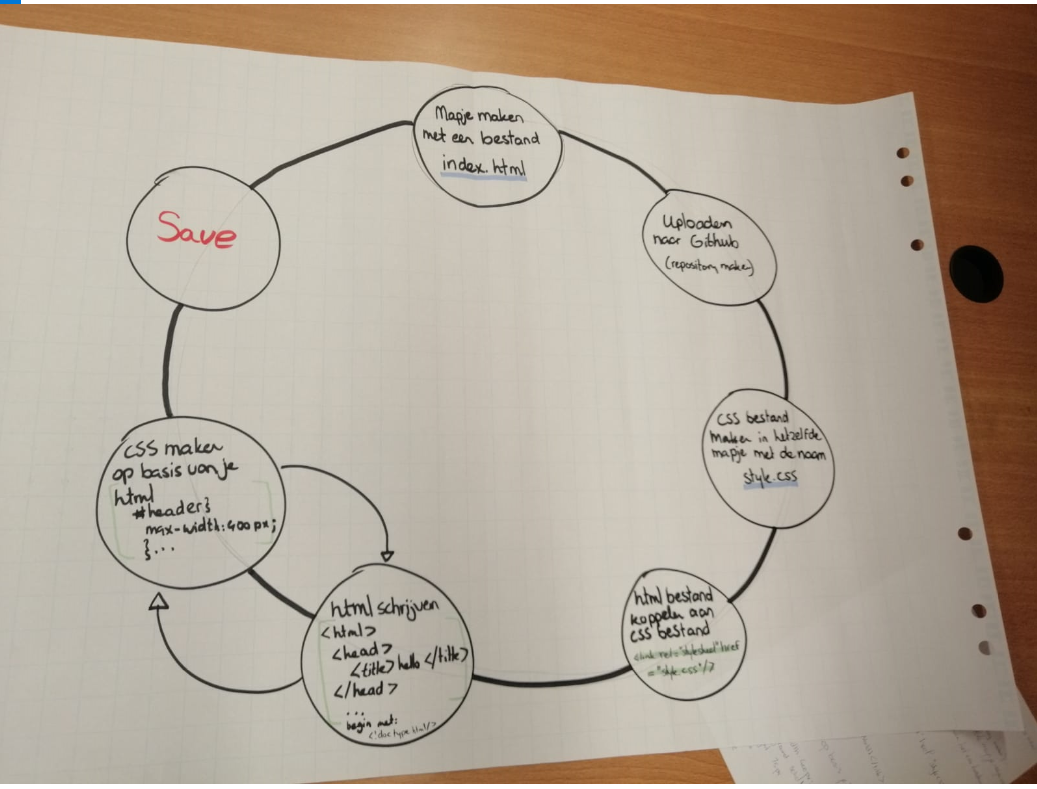 Mapje maken
met een bestand
index.html
Uploaden
naar Github
(repository maken)
CSS bestand
maken in hetzelfde
mapje met de naam
style.css
html bestand
koppelen aan
CSS bestand
<link rel="stylesheet" href
="style.css"/>
html schrijven
<html>
<head>
<title> hello </title>
</head>
...
begin met:
<!doctype html/>
CSS maken
op basis van je
html
#header{
max-width:400px;
}...
Save